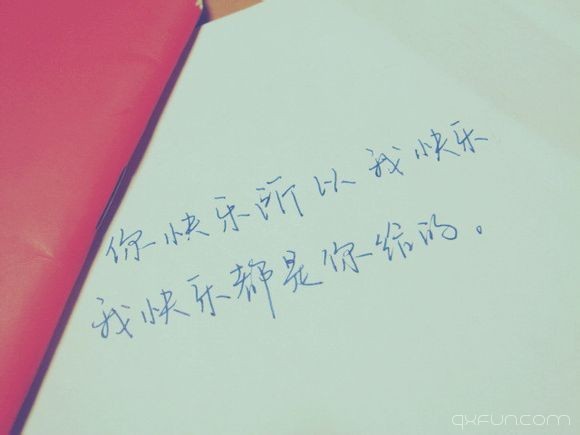 你快乐所以我快乐
我快乐都是你给的。
qxfun.com